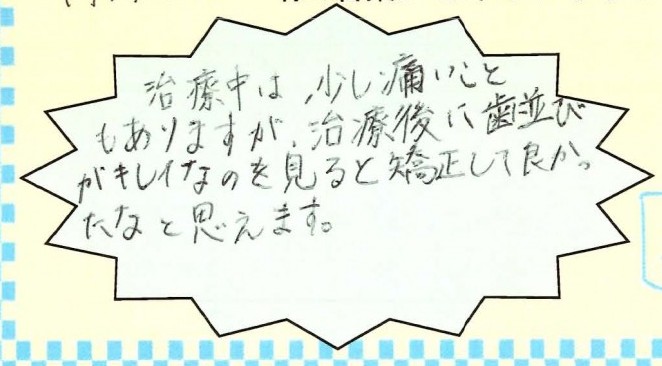 治療中は、少し痛いこと
もありますが、治療後に歯並び
がキレイなのを見ると矯正して良かっ
たなと思えます。